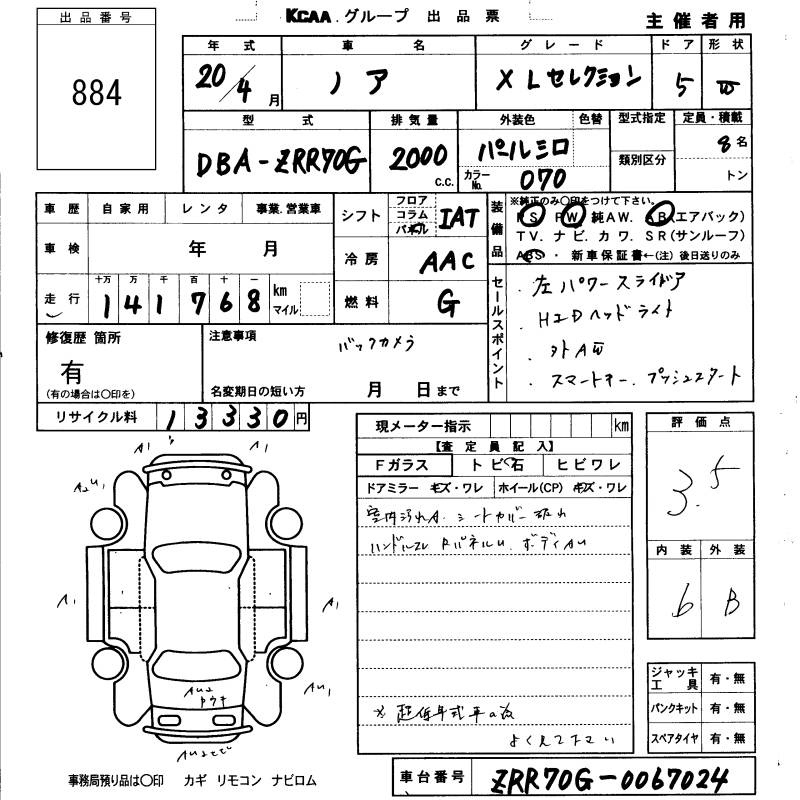 KCAA. グループ 出品票
主催者用
出品番号
884
年式 車名 グレード ドア 形状
20/4月 ノア X Lセレクション 5 W
型式 排気量 外装色 色替 型式指定 定員・積載
DBA-ZRR70G 2000 c.c. パールシロ 類別区分 8名
カラーNo. 070 トン
車歴 自家用 レンタ 事業.営業車
車検 年 月
走行 十万 万 千 百 十 一
141768 km マイル
シフト フロア コラム パネル IAT
冷房 AAC
燃料 G
装備品
※純正のみ〇印をつけて下さい。
PS PW 純AW. AB(エアバック)
TV. ナビ. カワ. SR(サンルーフ)
ABS ・ 新車保証書←(注)後日送りのみ
セールスポイント
・左パワースライドア
・HIDヘッドライト
・外AW
・スマートキー.プッシュスタート
修復歴 箇所
有
(有の場合は〇印を)
注意事項
バックカメラ
名変期日の短い方 月 日まで
リサイクル料 13330円
現メーター指示 km
【査定員記入】
Fガラス トビ石 ヒビワレ
ドアミラー キズ・ワレ ホイール(CP) キズ・ワレ
室内汚れA. シートカバー破れ
ハンドルスレ RパネルU. ボディAU
よく見て下さい
評価点
3.5
内装 外装
6 B
ジャッキ工具 有・無
パンクキット 有・無
スペアタイヤ 有・無
A1 A1
A2U1
A1 A1
AU2
AU1
事務局預り品は〇印 カギ リモコン ナビロム
車台番号 ZRR70G-0067024